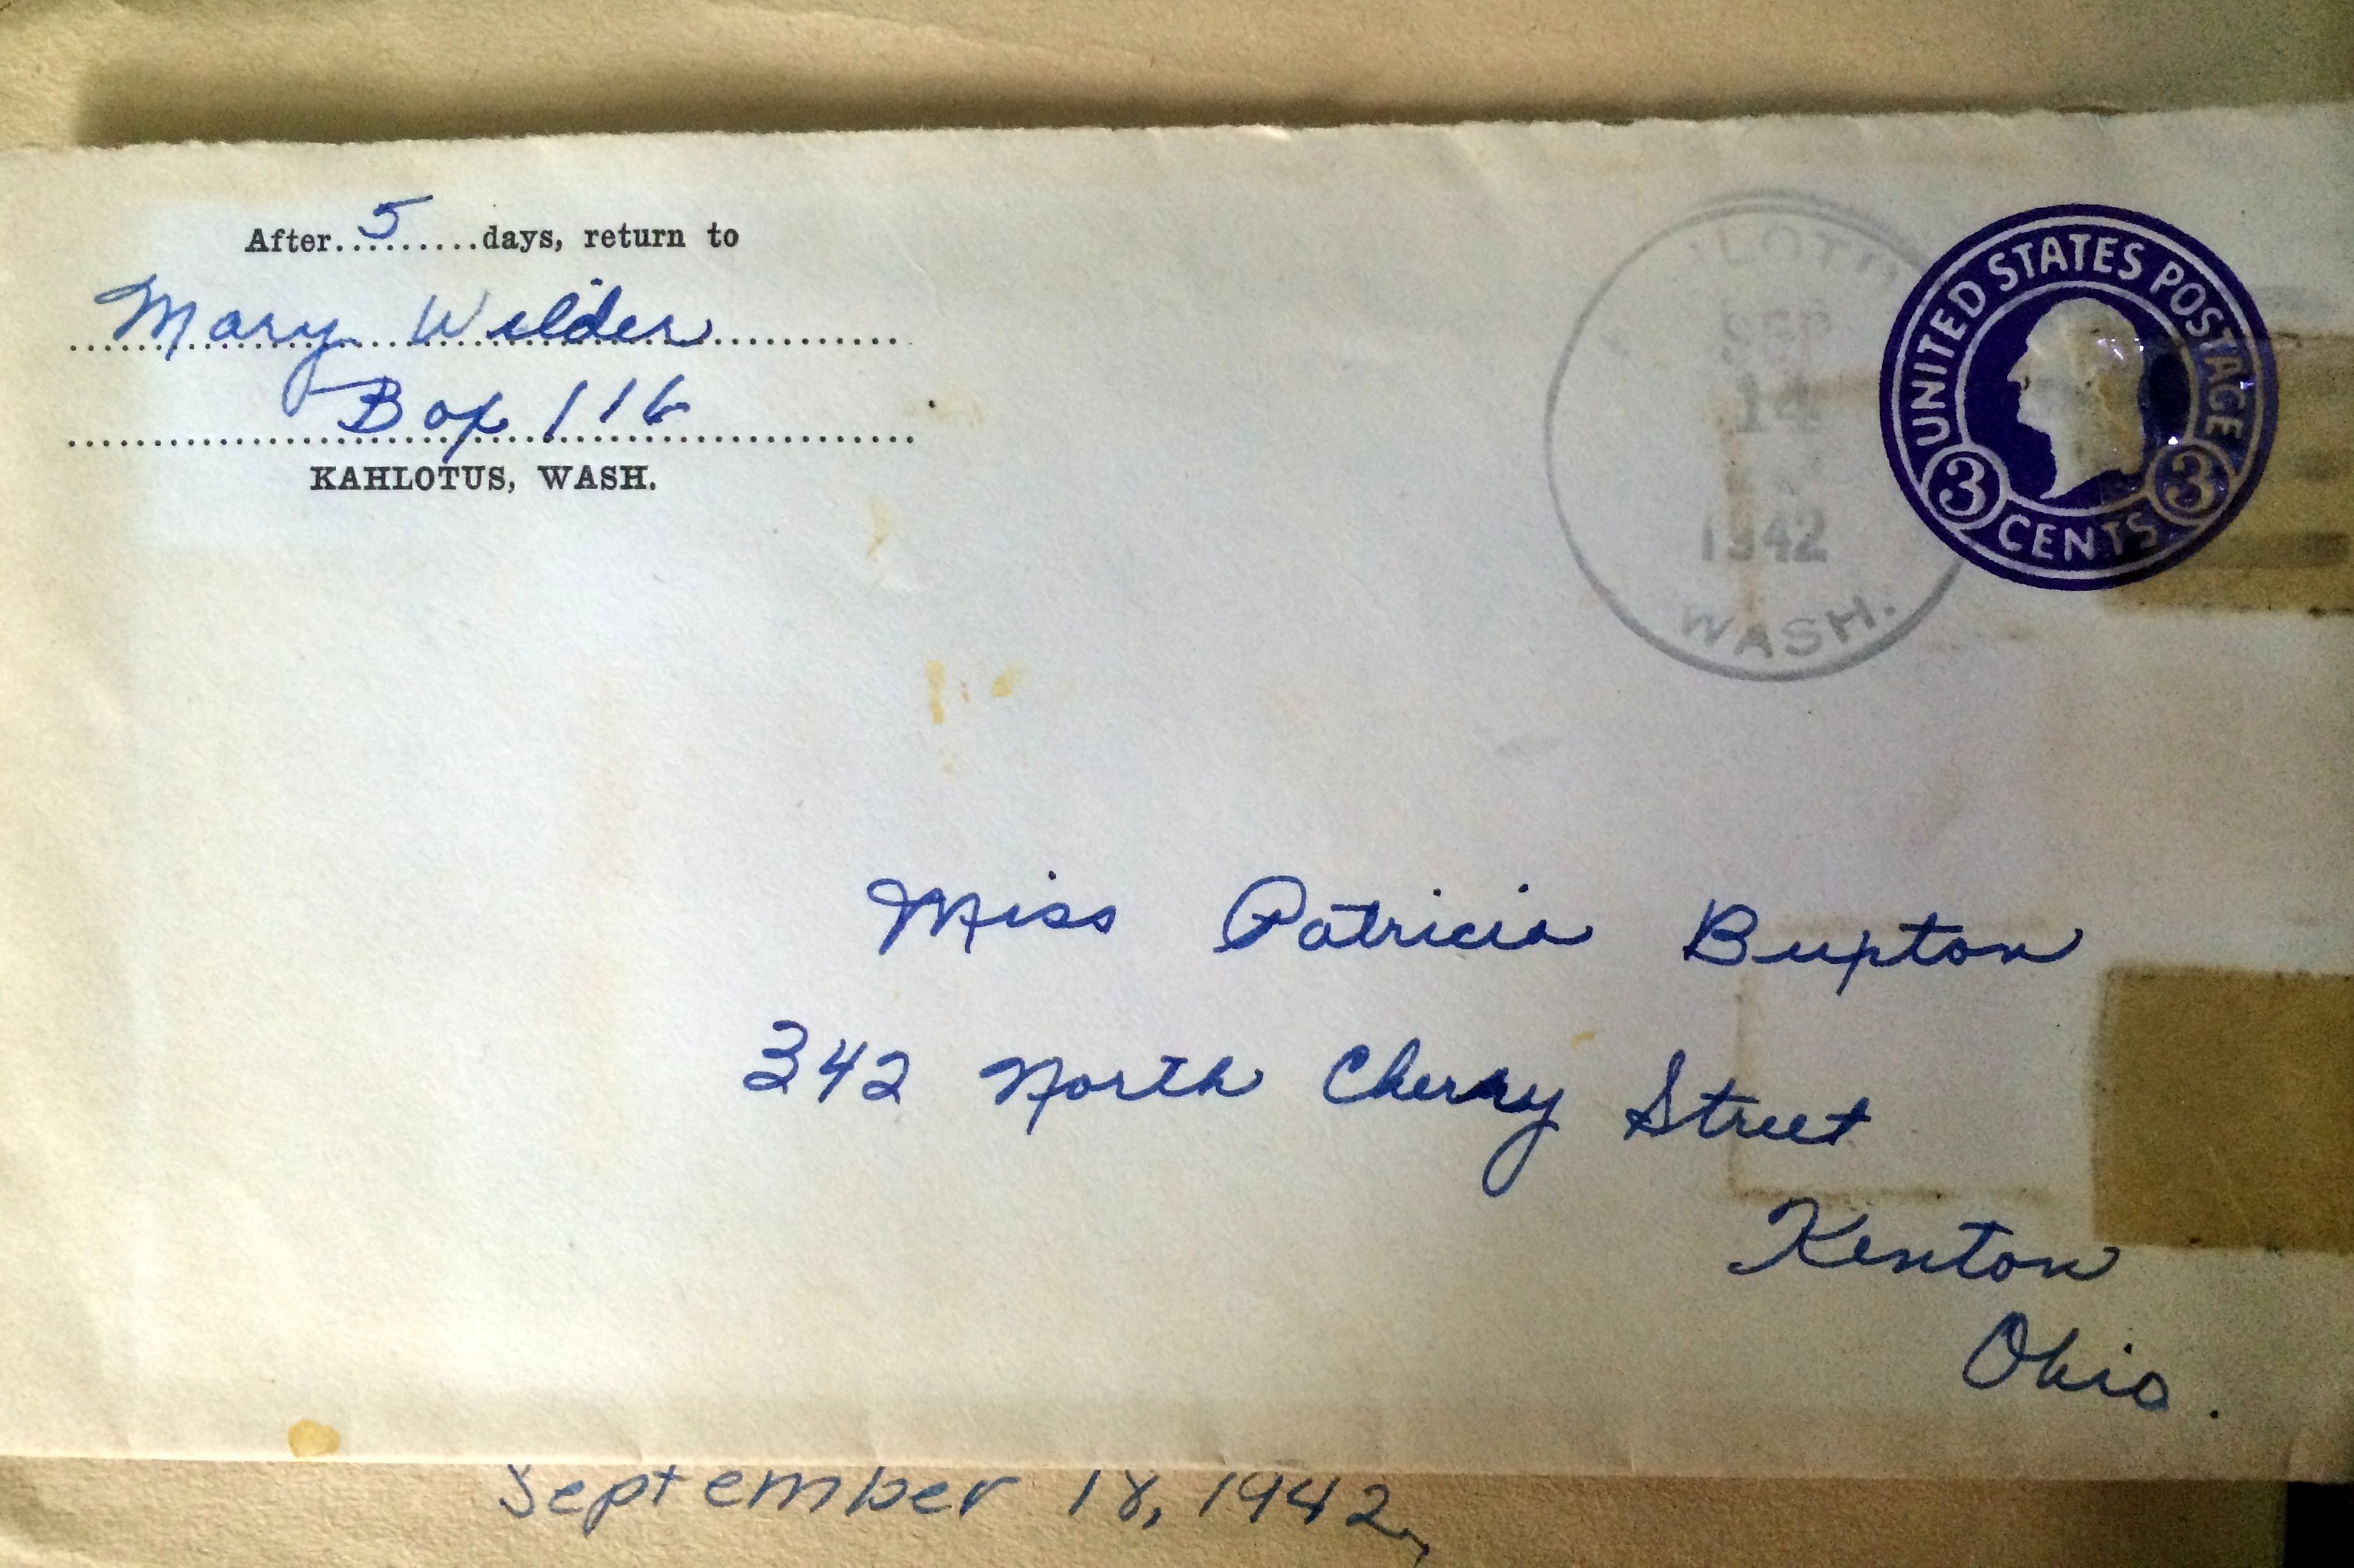 After 5 days, return to
Mary Wilder
Box 116
KAHLOTUS, WASH.
SEP
14
1942
WASH.
UNITED STATES POSTAGE
3 CENTS 3
Miss Patricia Bupton
342 North Cherry Street
Kenton
Ohio.
September 18, 1942,